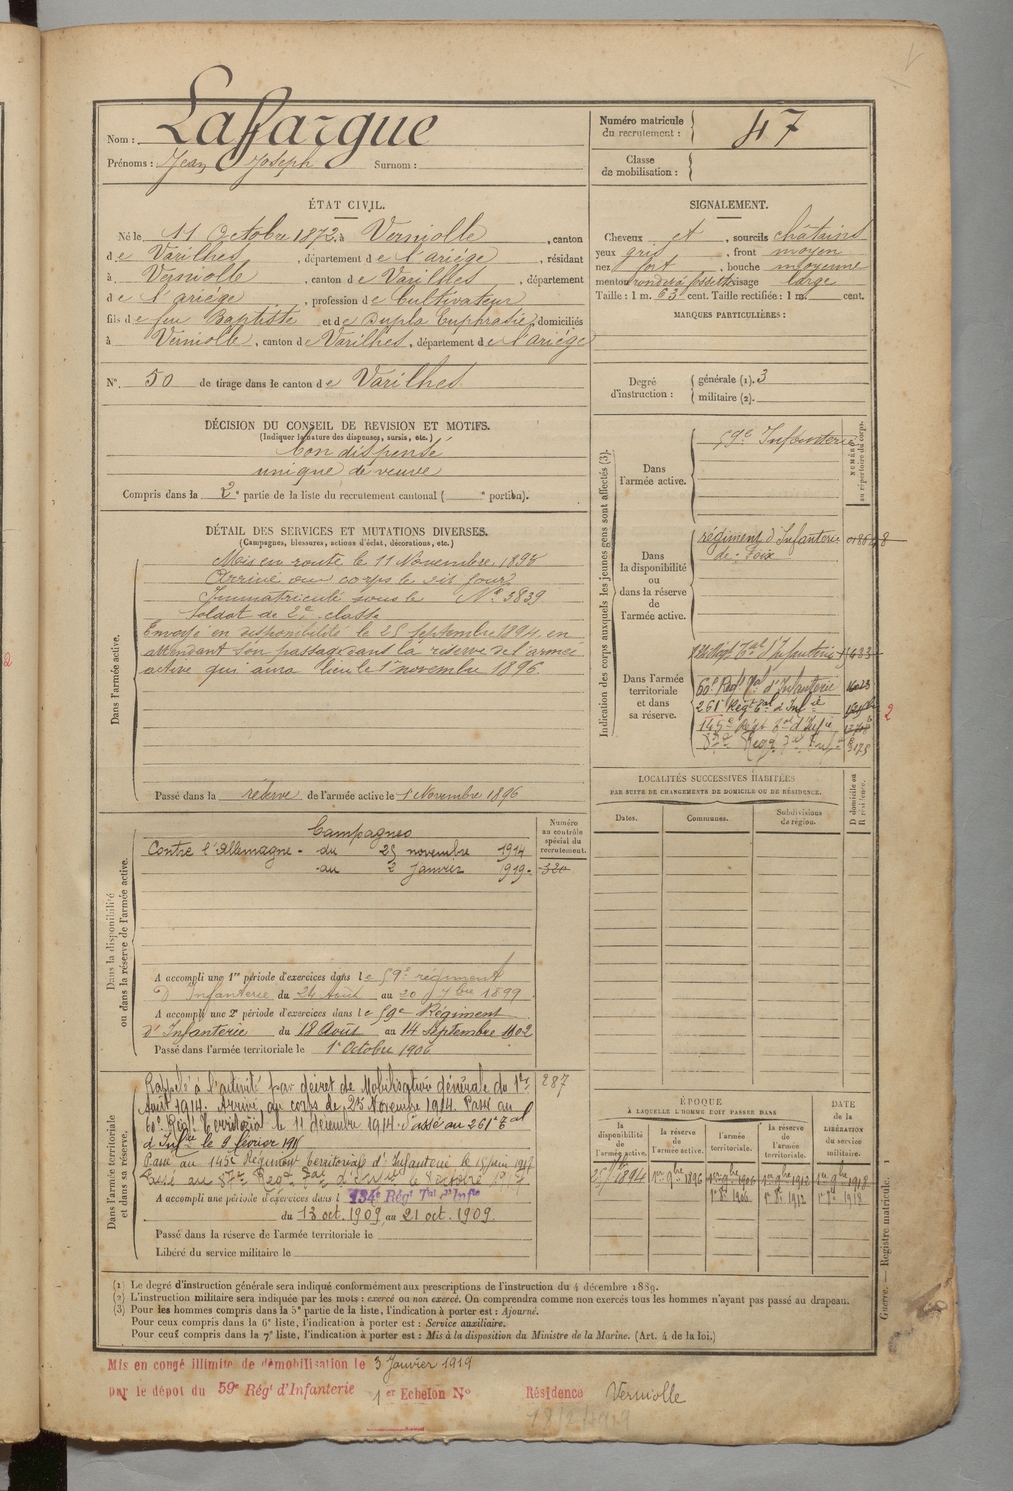 Nom : Laffargue
Prénoms : Jean Joseph Surnom :
Numéro matricule du recrutement : 47
Classe de mobilisation :
ÉTAT CIVIL.
Né le 11 Octobre 1872, à Verniolle, canton
de Varilhes, département de l'ariége, résidant
à Verniolle, canton de Varilhes, département
de l'ariége, profession de Cultivateur
fils de feu Baptiste et de Dupla Euphrasie, domiciliés
à Verniolle, canton de Varilhes, département de l'ariége
N° 50 de tirage dans le canton de Varilhes
SIGNALEMENT.
Cheveux et, sourcils châtains
yeux gris, front moyen
nez fort, bouche moyenne
menton rond à fossette visage large
Taille : 1 m. 63 cent. Taille rectifiée : 1 m. cent.
MARQUES PARTICULIÈRES :
Degré d'instruction : générale (1). 3
militaire (2).
DÉCISION DU CONSEIL DE REVISION ET MOTIFS.
(Indiquer la nature des dispenses, sursis, etc.)
bon dispensé
unique de veuve
Compris dans la 2e partie de la liste du recrutement cantonal ( e portion).
DÉTAIL DES SERVICES ET MUTATIONS DIVERSES.
(Campagnes, blessures, actions d'éclat, décorations, etc.)
Dans l'armée active.
Mis en route le 11 Novembre 1893
Arrivé au corps le dit jour
Immatriculé sous le N° 3839
Soldat de 2e classe
Envoyé en disponibilité le 25 septembre 1894, en
attendant son passage dans la réserve de l'armée
active qui aura lieu le 1er novembre 1896.
Passé dans la réserve de l'armée active le 1er Novembre 1896
Indication des corps auxquels les jeunes gens sont affectés (3).
NUMÉROS au répertoire du corps.
Dans l'armée active.
59e Infanterie
Dans la disponibilité ou dans la réserve de l'armée active.
régiment d'Infanterie
de Foix
Dans l'armée territoriale et dans sa réserve.
60e Régt Tal d'Infanterie
261e Régt Tal d'Inf ie
145e Régt Tal d'Inf ie
2
LOCALITÉS SUCCESSIVES HABITÉES
PAR SUITE DE CHANGEMENTS DE DOMICILE OU DE RÉSIDENCE.
Dates. Communes. Subdivisions de région.
D domicile ou R résidence.
Dans la disponibilité ou dans la réserve de l'armée active.
Numéro au contrôle spécial du recrutement.
320
Campagnes
Contre l'Allemagne - du 25 novembre 1914
au 2 janvier 1919-
A accompli une 1re période d'exercices dans le 59e régiment
d'Infanterie du 24 Août au 20 7bre 1899
A accompli une 2e période d'exercices dans le 59e Régiment
d'Infanterie du 18 Août au 14 Septembre 1902
Passé dans l'armée territoriale le 1er Octobre 1906
Dans l'armée territoriale et dans sa réserve.
287
Rappelé à l'activité par décret de Mobilisation générale du 1er
Août 1914. Arrivé au corps le 25 Novembre 1914. Passé au
60e Régt Territorial le 11 décembre 1914. Passé au 261e Tal
d'Infrie le 9 février 1915
Passé au 145e Régiment territorial d'Infanterie le 15 juin 1917
A accompli une période d'exercices dans l 134e Régt Tal d'Infie
du 13 oct. 1909, au 21 oct. 1909.
Passé dans la réserve de l'armée territoriale le
Libéré du service militaire le
ÉPOQUE
À LAQUELLE L'HOMME DOIT PASSER DANS
la disponibilité de l'armée active. la réserve de l'armée active. l'armée territoriale. la réserve de l'armée territoriale.
DATE de la LIBÉRATION du service militaire.
25 7bre 1894 1er 9bre 1896 1er 9bre 1906 1er 9bre 1912 1er 9bre 1918
1er 8bre 1906 1er 8bre 1912 1er 8bre 1918
(1) Le degré d'instruction générale sera indiqué conformément aux prescriptions de l'instruction du 4 décembre 1889.
(2) L'instruction militaire sera indiquée par les mots : exercé ou non exercé. On comprendra comme non exercés tous les hommes n'ayant pas passé au drapeau.
(3) Pour les hommes compris dans la 5e partie de la liste, l'indication à porter est : Ajourné.
Pour ceux compris dans la 6e liste, l'indication à porter est : Service auxiliaire.
Pour ceux compris dans la 7e liste, l'indication à porter est : Mis à la disposition du Ministre de la Marine. (Art. 4 de la loi.)
Guerre. — Registre matricule.
Mis en congé illimité de démobilisation le 3 Janvier 1919
par le dépot du 59e Régt d'Infanterie 1er Echelon N° Résidence Verniolle
18/2/1919